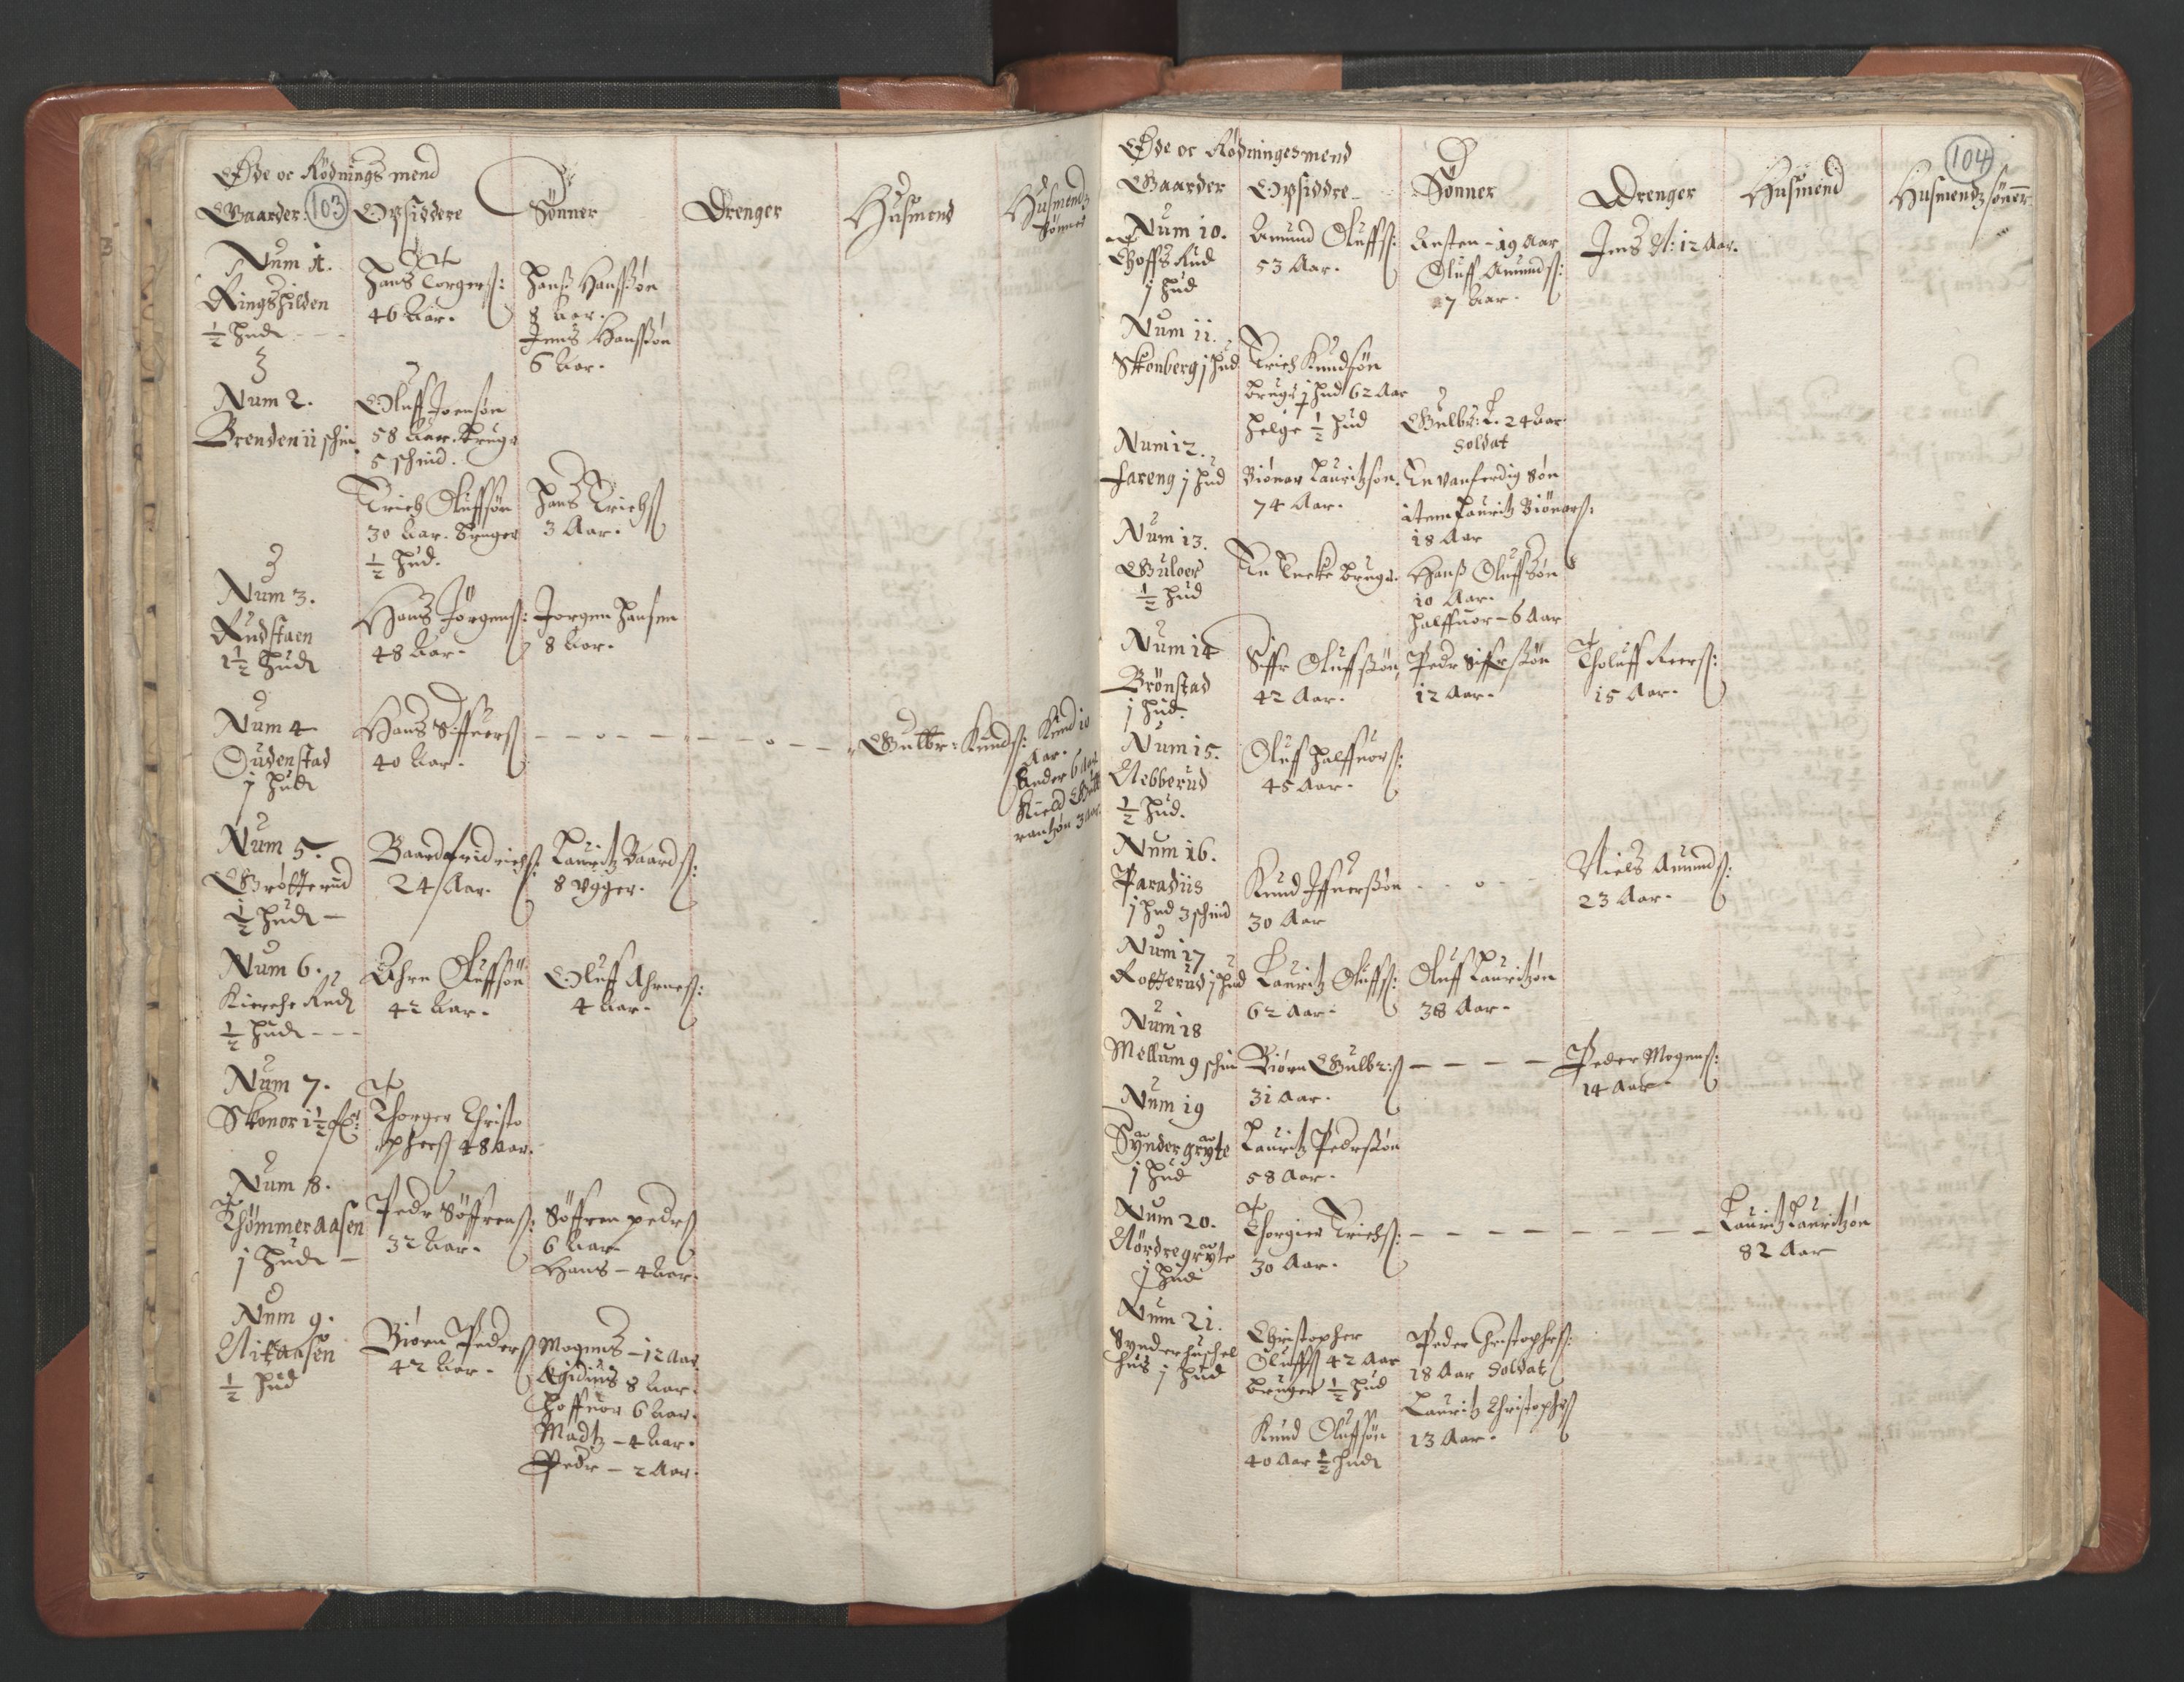 Øde oc Rödnings mend
Gaarder: 103 Opsiddere Sönner Drenger Husmend Husmendz sönner
Num 1.
Ringshilden
½ hudt
Hans Torgerß:
46 Aar.
Hanß Hanßøn
8 Aar.
Jens Hanßøn
6 Aar.
Num 2.
Brenden 11 schin
Oluff Joensøn
58 Aar. Bruger
5 schind.
Erich Oluffsøn
30 Aar. Bruger
½ hud.
Hans Erichß
3 Aar.
Num 3.
Rudstaen
1½ hudt
Hans Jörgenß:
48 Aar.
Jorgen Hansen
8 Aar.
Num 4
Oudenstad
j hudt
Hans Siffuerß
40 Aar.
Gulbr: Knudß:
Knud 10
Aar.
Ander 6 Aar
Kield Gulb
rantzøn 3 Aar.
Num 5.
Grötterud
½ hudt
Baard fridrichß:
24 Aar.
Lauritz Baardß:
8 Vgger.
Num 6.
Kierche Rudt
½ hudt
Ahrn Oluffsøn
42 Aar.
Oluff Ahrneß:
4 Aar.
Num 7.
Skonor 1½
Thorger Christo
pherß 48 Aar.
Num 8.
Thömmeraasen
j hudt
Pedr Söffrenß:
32 Aar.
Söffren pedrß
6 Aar
Hans - 4 Aar.
Num 9.
Nitaasen
½ hud
Biørn Pederß
42 Aar.
Mogens - 12 Aar
Ægidius 8 Aar.
Hoffuor 6 Aar.
Madtz - 4 Aar.
Pedr - 2 Aar.
104
Øde oc Rödningesmend
Gaarder Opsiddre Sönner Drenger Husmend Husmendz sönner
Num 10.
Goffs Rud
j hud
Amund Oluffß:
53 Aar.
Aesten - 19 Aar
Oluff Amundß:
7 Aar.
Jens N: 12 Aar.
Num 11.
Skonberg j hud
Erich Knudsøn
bruger j hud 62 Aar
Helge ½ hud
Gulbr: E. 24 Aar
Soldat
Num 12.
fareng j hud
Biönar Lauritzsøn.
74 Aar.
En vanferdig Søn
item Lauritz Biönarß:
18 Aar
Num 13.
Guloer
½ hud
En Encke bruger.
Hanß Oluffsøn
10 Aar.
Halffuor - 6 Aar
Num 14
Brönstad
j hud.
Siffr Oluffsøn
42 Aar.
Pedr Siffrßøn
12 Aar.
Tholuff Reerß:
15 Aar.
Num 15.
Nebberud
½ hud.
Oluf Halffuorß:
45 Aar.
Num 16.
Paradiis
j hud 3 schind
Knud Iffuerßøn
30 Aar
Niels Amundß:
23 Aar.
Num 17
Rotterud j hud
Lauritz Oluffß:
62 Aar.
Oluff Lauritzøn
38 Aar.
Num 18
Mellum 9 schin
Biörn Gulbr:ß
31 Aar.
Peder Mogenß:
14 Aar.
Num 19
Synder gryte
j hud
Lauritz Pedrsøn
58 Aar.
Num 20.
Nördre gryte
j hud
Thorgier Erichß:
30 Aar.
Lauritz Lauritzøn
82 Aar
Num 21.
Synder huschel
hus j hud
Christopher
Oluffß 42 Aar
bruger ½ hud
Peder Christophrß:
18 Aar Soldat
Knud Oluffsøn
40 Aar ½ hudt
Lauritz Christophrß
13 Aar.